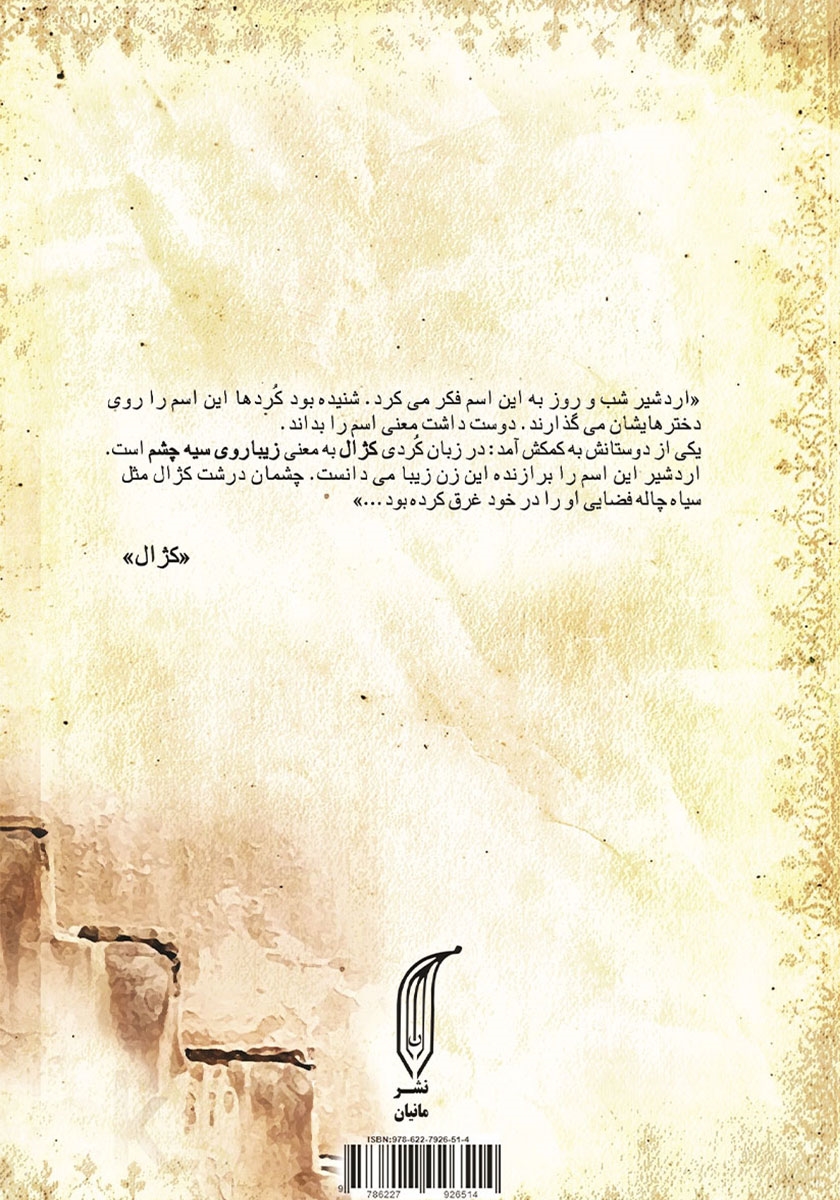 «اردشیر شب و روز به این اسم فکر می کرد. شنیده بود کُردها این اسم را روی
دخترهایشان می گذارند. دوست داشت معنی اسم را بداند.
یکی از دوستانش به کمکش آمد: در زبان کُردی کژال به معنی زیباروی سیه چشم است.
اردشیر این اسم را برازنده این زن زیبا می دانست. چشمان درشت کژال مثل
سیاه چاله فضایی او را در خود غرق کرده بود ...»
«کژال»
ن
نشر
مانیان
ISBN:978-622-7926-51-4
9 786227 926514